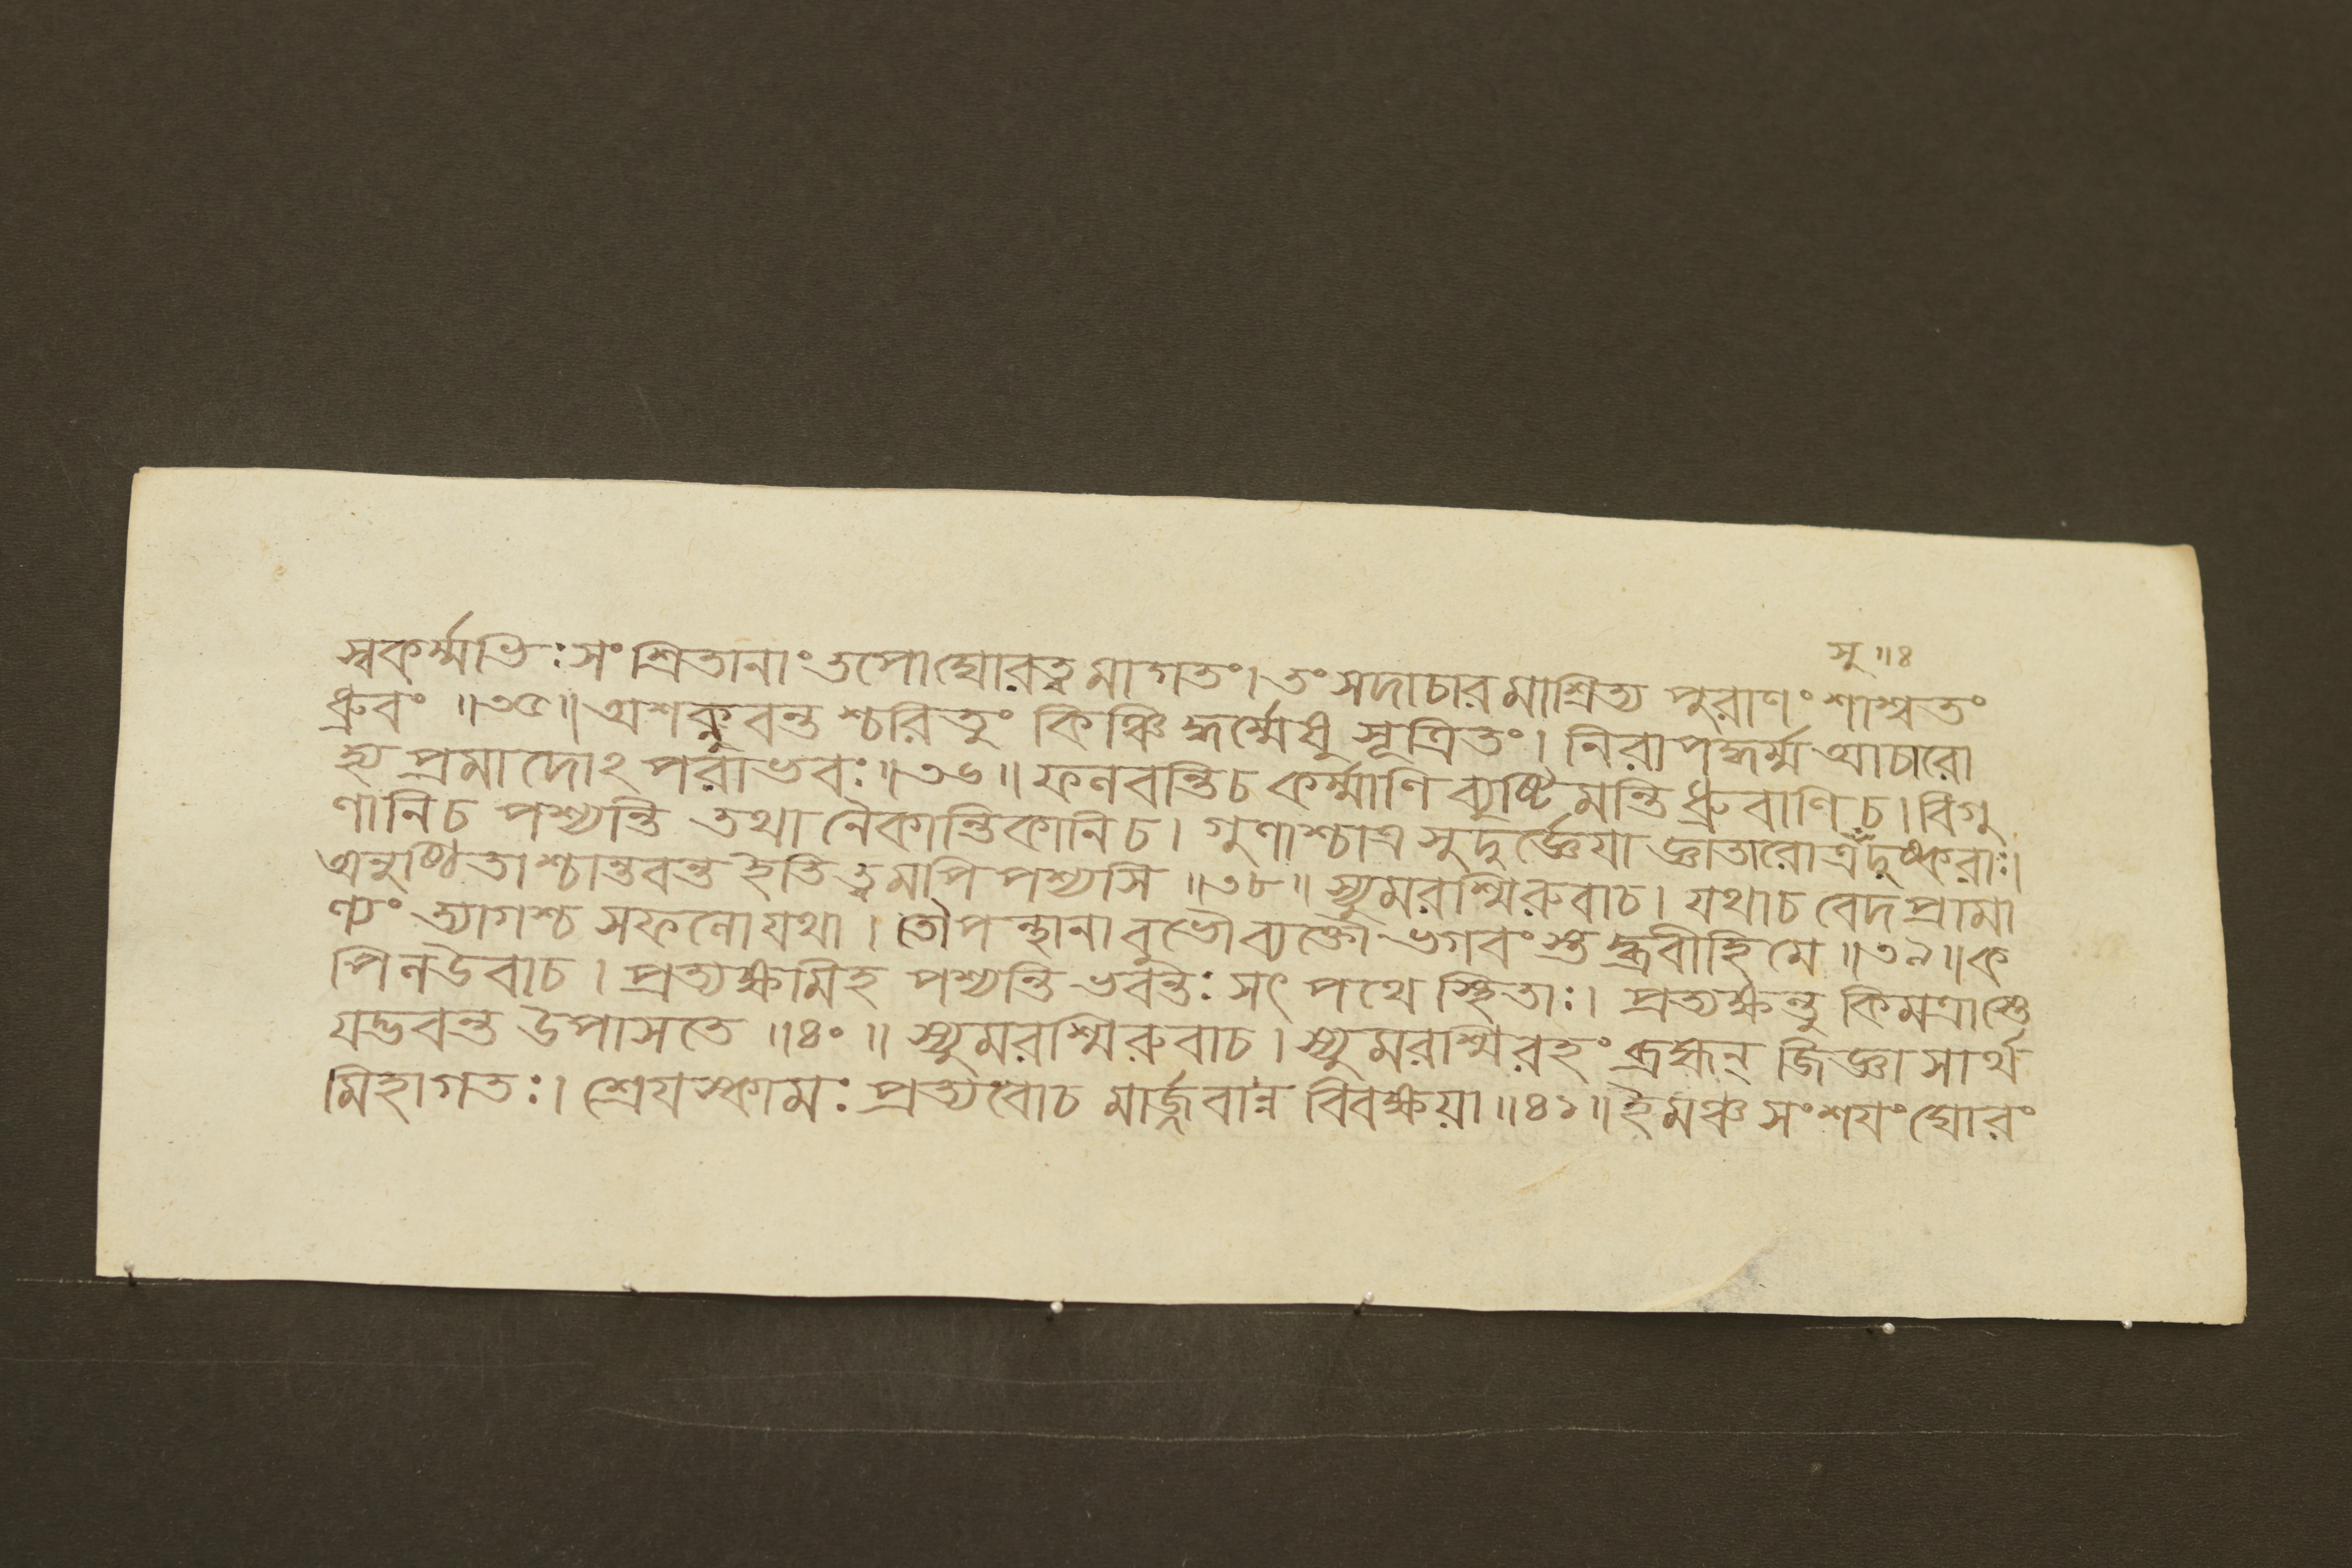 সু॥৪
স্বকর্ম্মভিঃ সংশ্রিতানাং তপোঘোরত্বমাগতং। তং সদাচারমাশ্রিত্য পুরাণং শাশ্বতং
ধ্রুবং ॥৩৫॥ অশক্নুবন্তশ্চরিতুং কিঞ্চিদ্ধর্ম্মেষু সূত্রিতং। নিরাপদ্ধর্ম্ম আচারো
হ্য প্রমাদোঽপরাভবঃ ॥৩৬॥ ফলবন্তিচ কর্ম্মাণি ব্যুষ্টিমন্তি ধ্রুবাণিচ। বিগু
ণানিচ পশ্যন্তি তথানৈকান্তিকানিচ। গুণাশ্চাত্র সুদুর্জ্ঞেয়া জ্ঞাতারোত্র দুষ্করাঃ।
অনুষ্ঠিতাশ্চান্তবন্ত ইতি ত্বমপি পশ্যসি ॥৩৮॥ স্যুমরশ্মিরুবাচ। যথাচ বেদপ্রামা
ণ্যং ত্যাগশ্চ সফলো যথা। তৌ পন্থানাবুভৌ ব্যক্তৌ ভগবংস্তদ্ব্রবীহি মে ॥৩৯॥ ক
পিল উবাচ। প্রত্যক্ষমিহ পশ্যন্তি ভবন্তঃ সৎপথে স্থিতাঃ। প্রত্যক্ষন্তু কিমত্রাস্তে
যদ্ভবন্ত উপাসতে ॥৪০॥ স্যুমরশ্মিরুবাচ। স্যুমরশ্মিরহং ব্রহ্মন্ জিজ্ঞাসার্থ
মিহাগতঃ। শ্রেয়স্কামঃ প্রত্যবোচ মার্জ্জবান্ন বিবক্ষয়া ॥৪১॥ ইমঞ্চ সংশয়ং ঘোরং